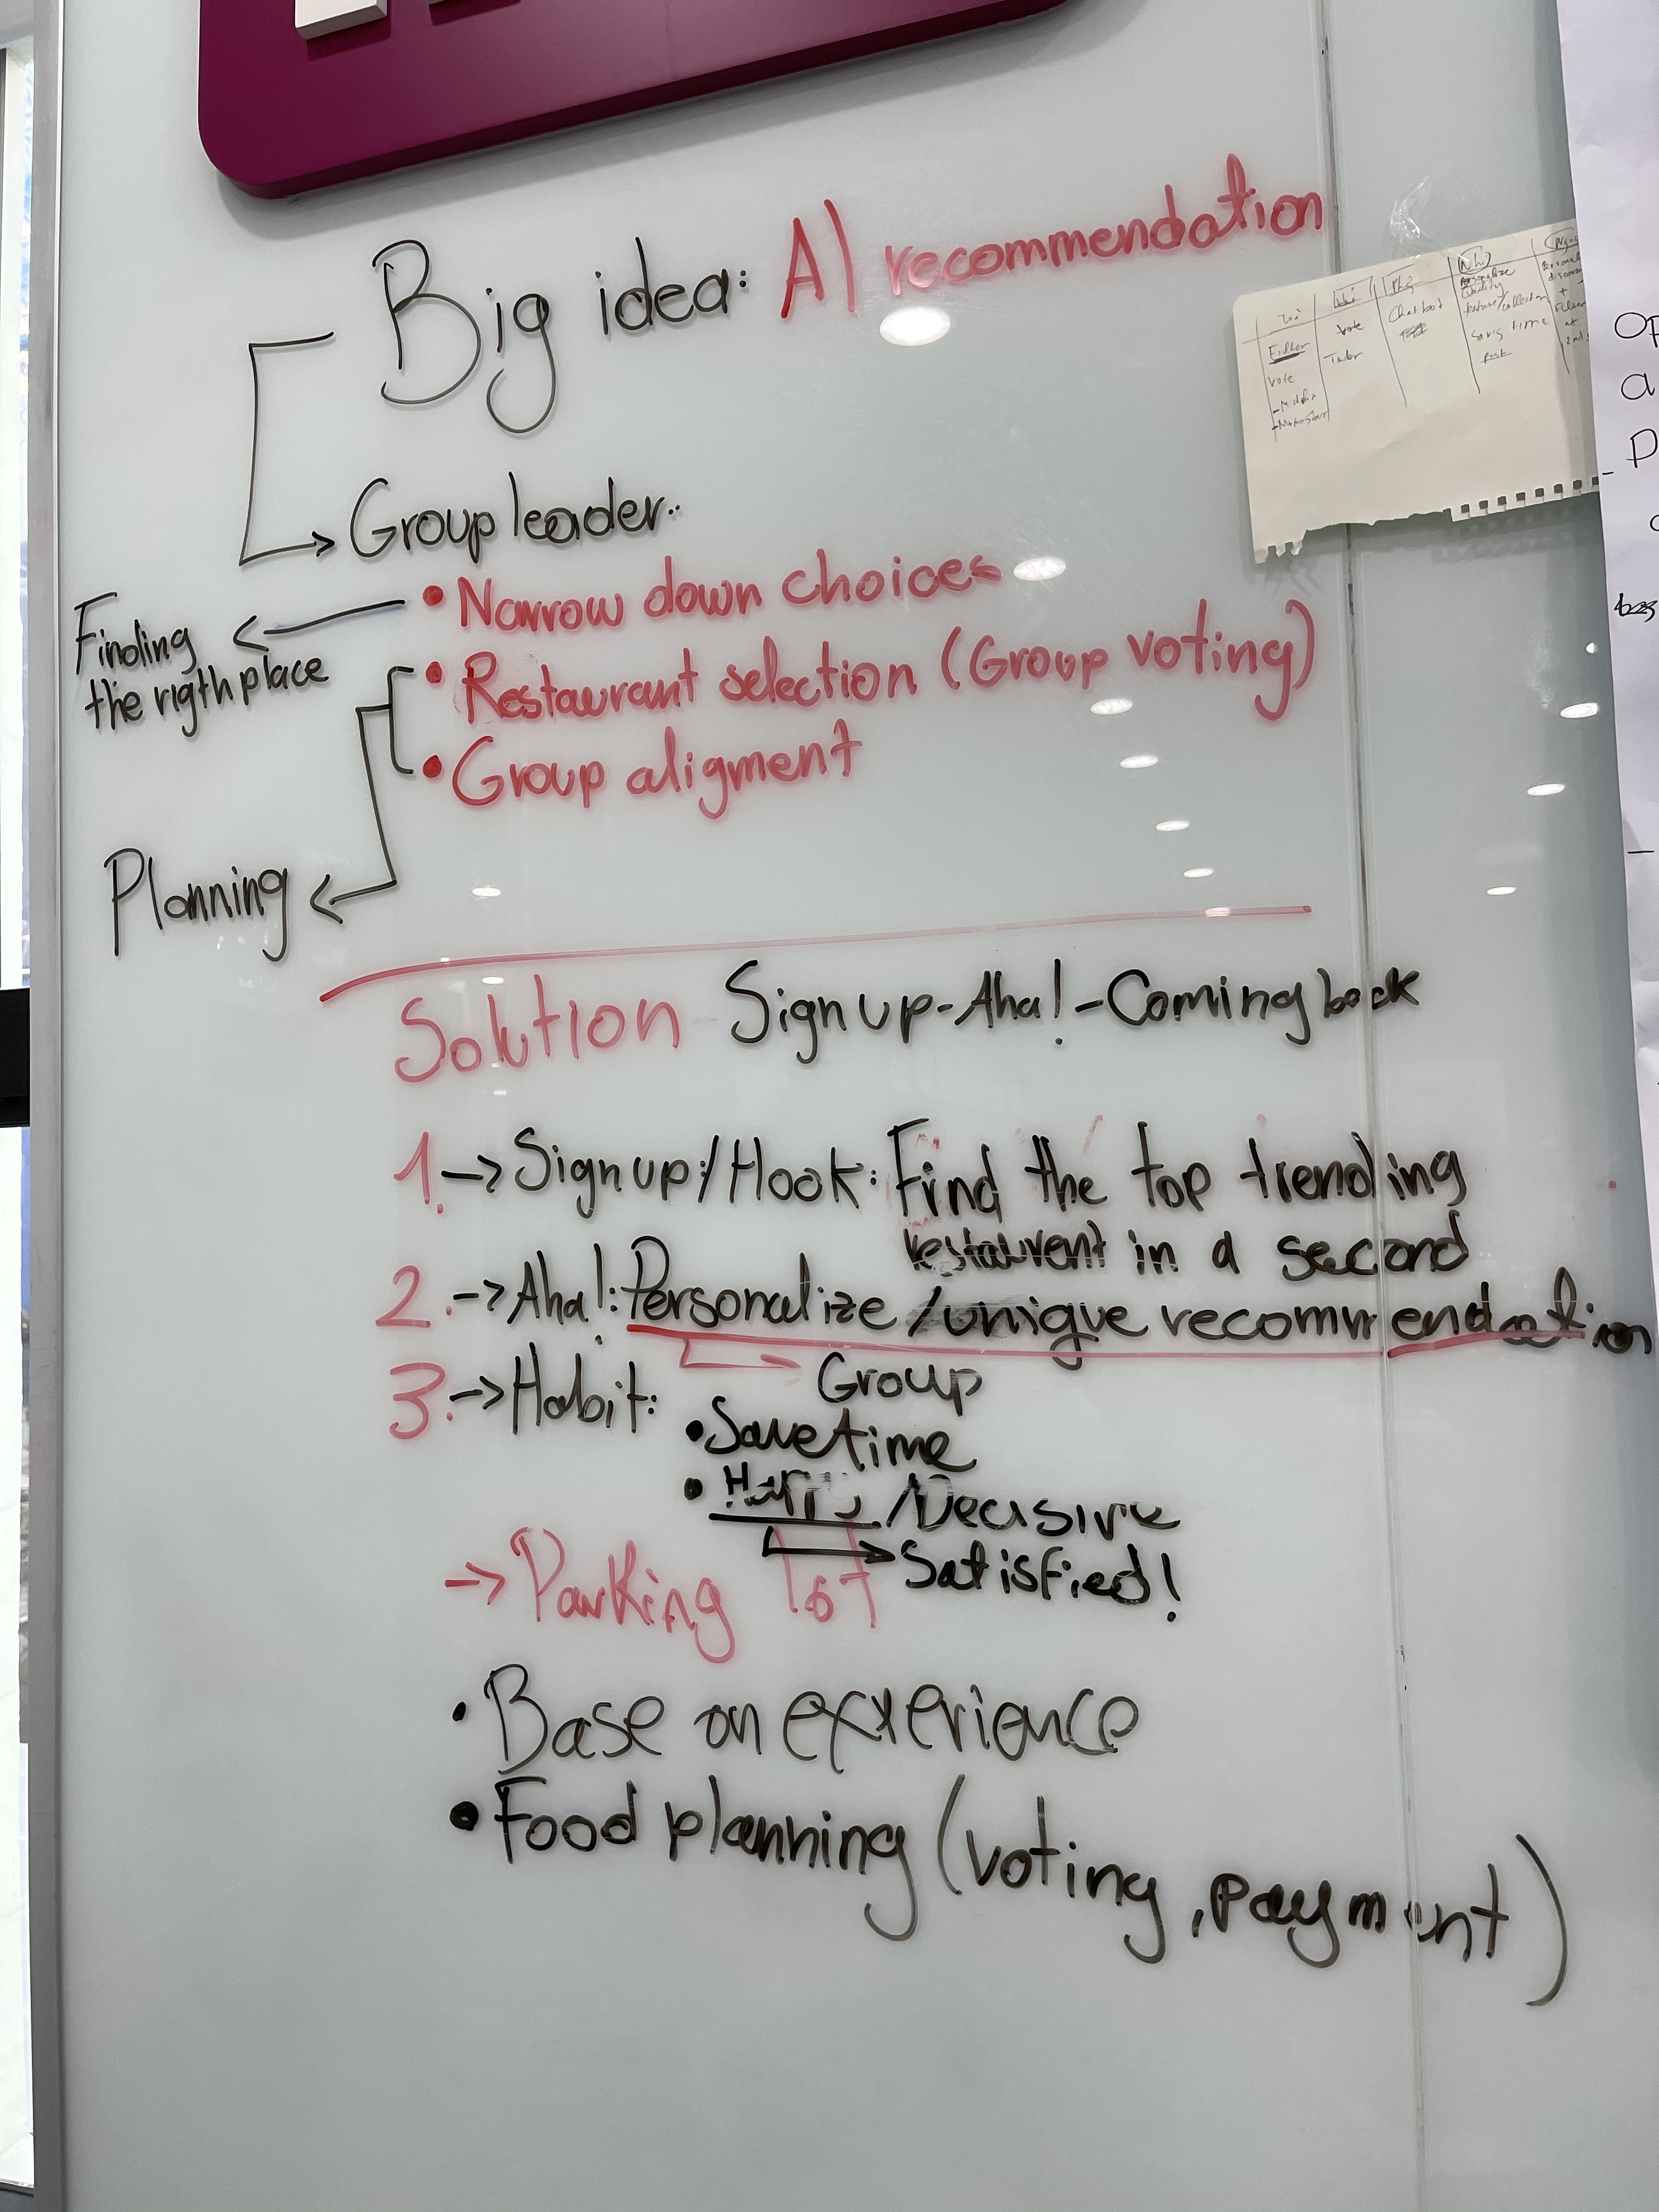 Big idea: AI recommendation
Group leader:
• Narrow down choices
Finding
the rigth place
• Restaurant selection (Group voting)
• Group aligment
Planning
Solution - Sign up - Aha! - Coming back
1. -> Sign up/Hook: Find the top trending
restaurent in a second
2. -> Aha!: Personalize/unique recommendation
Group
3. -> Habit:
• Save time
• Happy/Decisive
Satisfied!
-> Parking lot
• Base on experience
• Food planning (voting, payment)
Vote
Tinder
Chat
Personalize
Quality
time
Filter
Vote